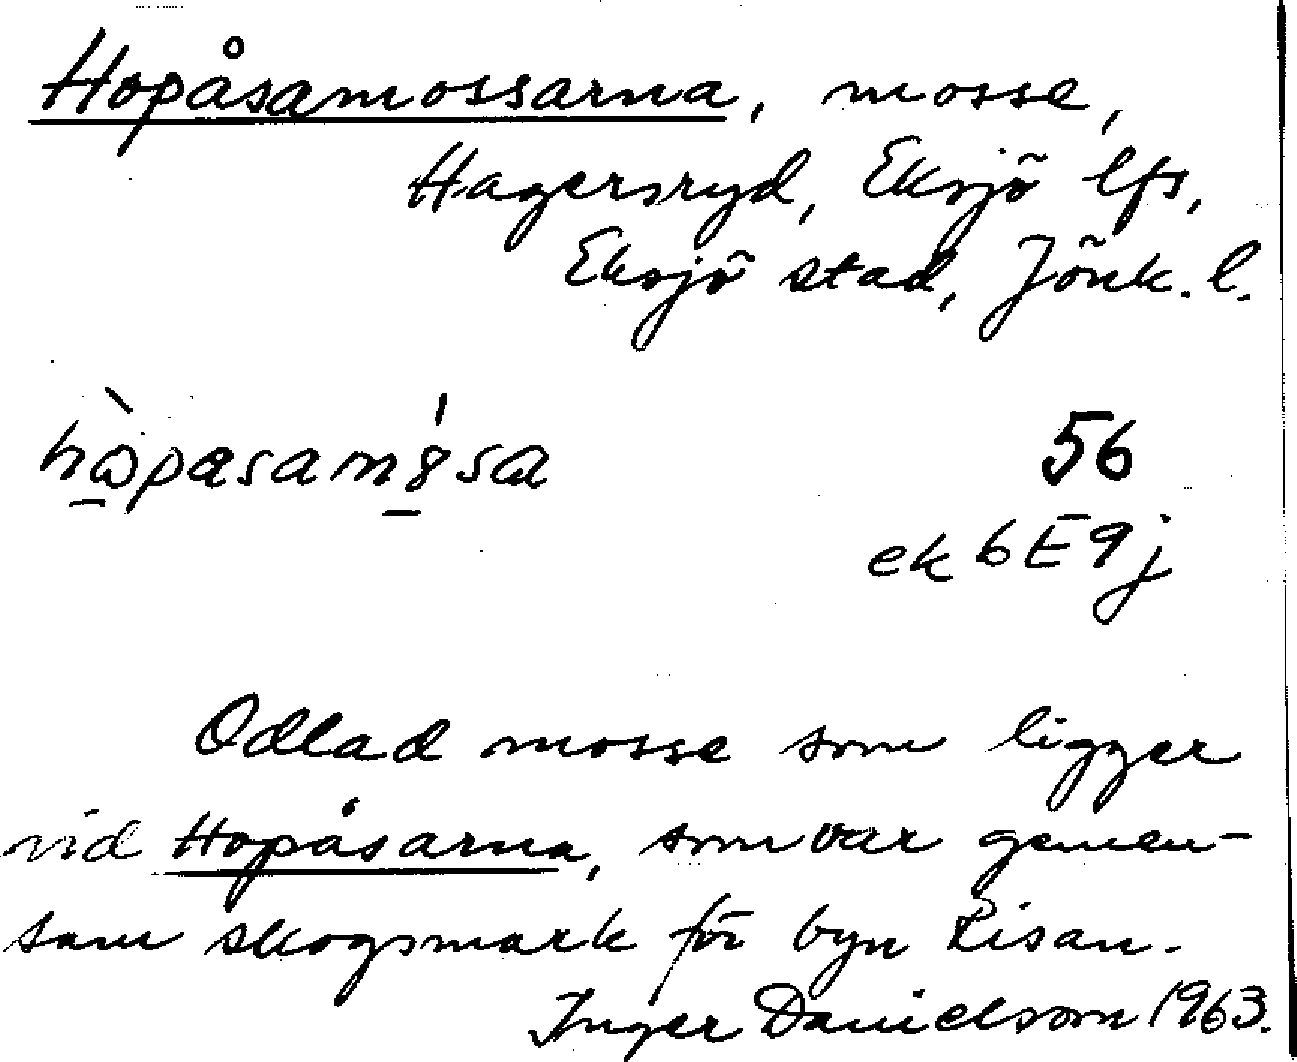 Hopåsamossarna, mosse,
Hagersryd, Eksjö lfs,
Eksjö stad, Jönk. l.
56
ek 6 E 9 j
Odlad mosse som ligger
vid Hopåsarna, som var gemen-
sam skogsmark för byn Risan.
Inger Danielsson 1963.